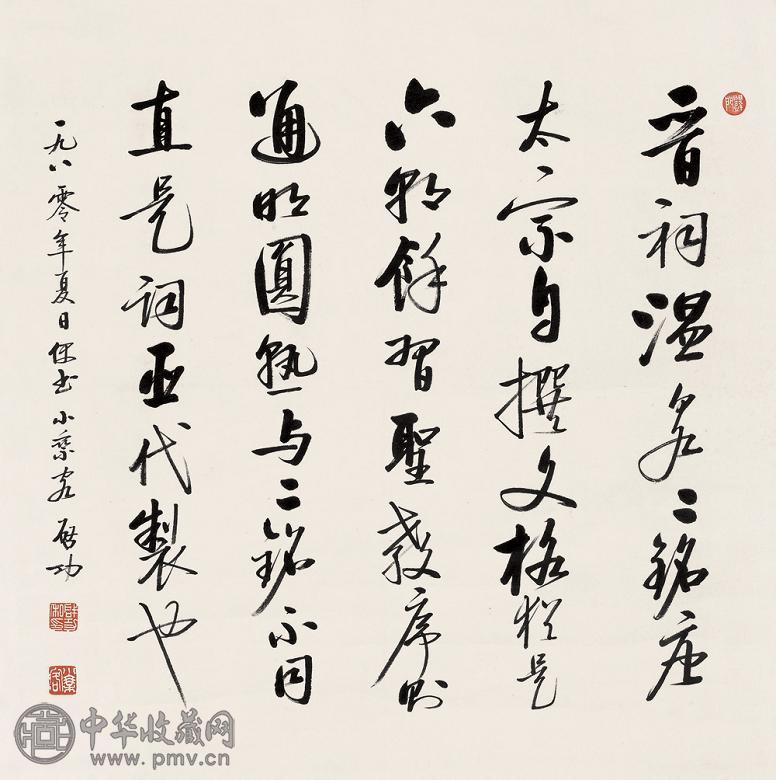 晋祠温泉二銘唐
太宗自撰文格猶是
六朝餘習聖教序則
通明圓熟与二銘不同
直是词臣代製也
一九八零年夏日偶书小乘客啟功
中华收藏网
www.pmv.cn